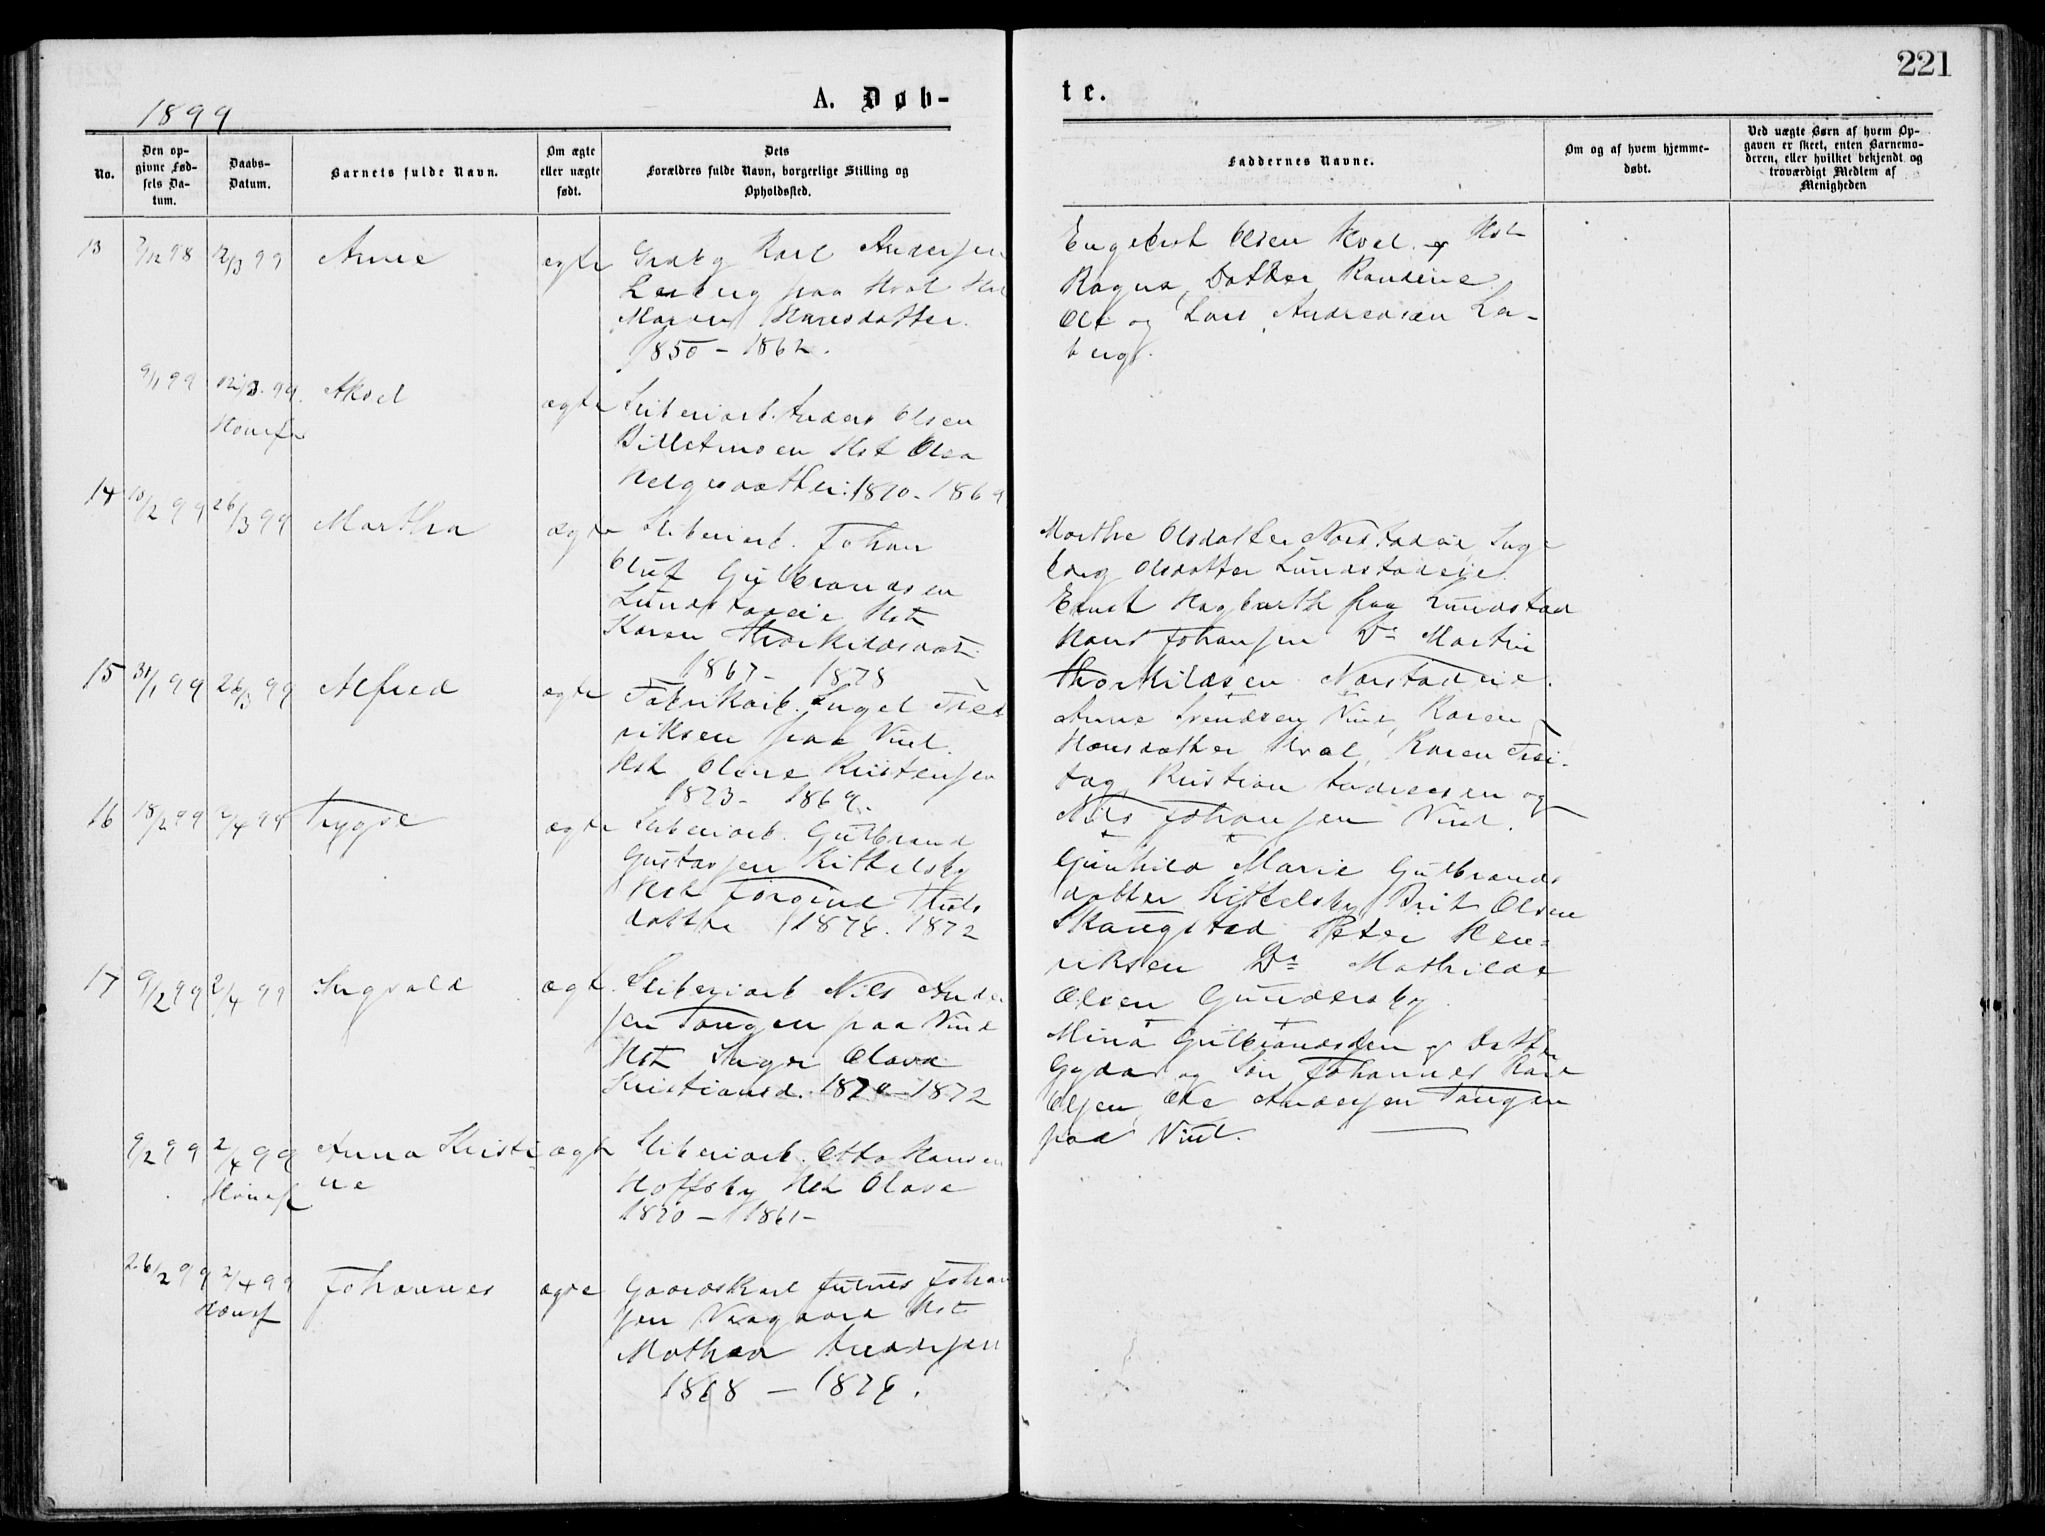 221
1899
A. Døb-
te.
No.
Den opgivne Fødsels Datum.
Daabs-Datum.
Barnets fulde Navn.
Om ægte eller uægte født.
Dets Forældres fulde Navn, borgerlige Stilling og Opholdssted.
Faddernes Navne.
Om og af hvem hjemmedøbt.
Ved uægte Børn af hvem Opgaven er skeet, enten Barnemoderen, eller hvilket bekjendt og troværdigt Medlem af Menigheden
13 12/3 99 ægte Karl Andersen
paa Hval
Maren Hansdatter.
1850 - 1862.
Olsen Hval og Hst
Ragna, Datter Randine
og Lars Andreasen La-
9/1 99 12/3 99 Aksel ægte Sliberiarb. Anders Olsen
Hønef
Hst Olea
Helgesdatter: 1870-1869
14 10/2 99 26/3 99 Martha ægte Sliberiarb. Johan
Oluf Gulbrandsen
Lundstadeie Hst
Karen Thorkildsdat
1867 - 1878
Marthe Olsdatter Norstadeie Inge-
borg Olsdatter Lundstadeie.
Hagbarth Lundstad
Hans Johansen Ds Martin
Thorkildsen Norstadeie.
15 31/1 99 26/3 99 Alfred ægte Fabrikarb. Engel Fred
riksen paa Viul.
Hst Oline Kristensen
1873 - 1869.
Anne Svendsen Viul, Karen
Hansdatter Hval, Karen Frei-
dag, Kristian Andresen og
Nils Johansen Viul.
16 18/2 99 2/4 99 Trygve ægte Sliberiarb. Gulbrand
Gustavsen Kittelsby
Hst Jorgine
datter 1874. 1872
Gunhild Marie Gulbrands
datter Kittelsby, Brit Olsen
Skaugstad Peter Hen-
riksen Ds Mathilde
Olsen Gundersby
17 9/2 99 2/4 99 Ingvald ægte Sliberiarb Nils Ander
sen Tangen paa Viul
Hst Inger Olava
Kristiansd. 1870-1872
Mina Gulbrandsen og Datter
Gyda og Søn Johannes Karl
Olsen, Ole Andersen Tangen
paa Viul.
9/2 99 2/4 99 Anna Kristi ægte Sliberiarb. Otto Hansen
Hønef ne Hoffsby Hst Olava
1870 - 1861 -
26/2 99 2/4 99 Johannes ægte Gaardskarl Julius Johan
Hønef sen Hst
Mathea Andersen
1868 - 1876.